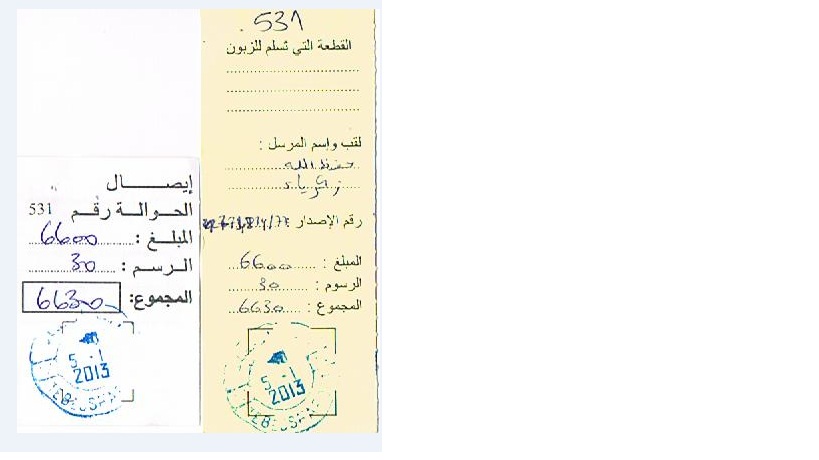 531
القطعة التي تسلم للزبون
لقب واسم المرسل :
حفظ الله
زكرياء
رقم الإصدار
المبلغ : 6600
الرسوم : 30
المجموع : 6630
5 - 1
2013
إيصال
الحوالة رقم 531
المبلغ : 6600
الرسم : 30
المجموع: 6630
5 - 1
2013